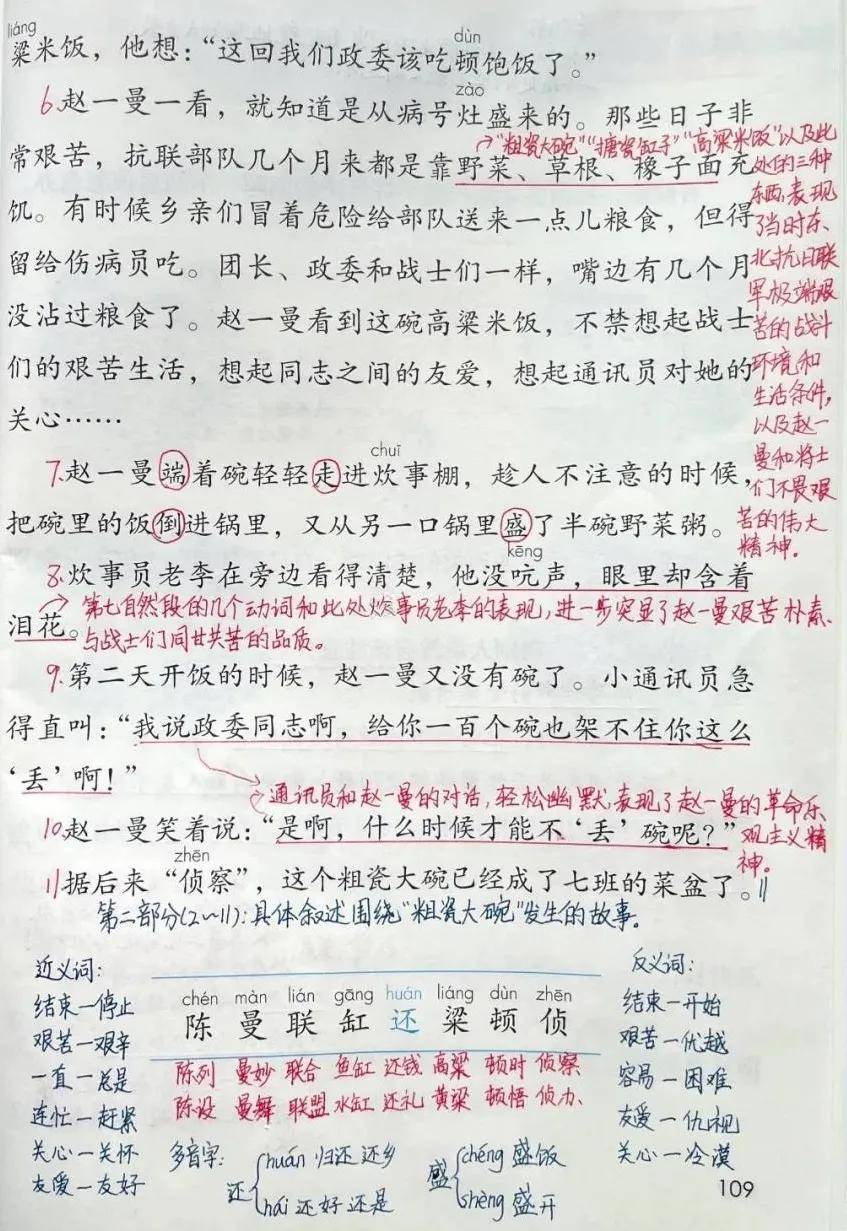 liáng
粱米饭，他想：“这回我们政委该吃顿饱饭了。”
dùn
zào
6.赵一曼一看，就知道是从病号灶盛来的。那些日子非
常艰苦，抗联部队几个月来都是靠野菜、草根、橡子面充
饥。有时候乡亲们冒着危险给部队送来一点儿粮食，但得
留给伤病员吃。团长、政委和战士们一样，嘴边有几个月
没沾过粮食了。赵一曼看到这碗高粱米饭，不禁想起战士
们的艰苦生活，想起同志之间的友爱，想起通讯员对她的
关心……
“粗瓷大碗”“搪瓷缸子”“高粱米饭”以及此
处的三种
东西，表现
了当时东
北抗日联
军极端艰
苦的战斗
环境和
生活条件，
以及赵一
曼和将士
们不畏艰
苦的伟大
精神。
chuī
7.赵一曼端着碗轻轻走进炊事棚，趁人不注意的时候，
把碗里的饭倒进锅里，又从另一口锅里盛了半碗野菜粥。
kēng
8.炊事员老李在旁边看得清楚，他没吭声，眼里却含着
泪花。
第七自然段的几个动词和此处炊事员老李的表现，进一步突显了赵一曼艰苦朴素、
与战士们同甘共苦的品质。
9.第二天开饭的时候，赵一曼又没有碗了。小通讯员急
得直叫：“我说政委同志啊，给你一百个碗也架不住你这么
‘丢’啊！”
通讯员和赵一曼的对话，轻松幽默，表现了赵一曼的革命乐
观主义精
神。
10.赵一曼笑着说：“是啊，什么时候才能不‘丢’碗呢？”
zhēn
11据后来“侦察”，这个粗瓷大碗已经成了七班的菜盆了。‖
第二部分(2～11)：具体叙述围绕“粗瓷大碗”发生的故事。
近义词：
结束—停止
艰苦—艰辛
一直—总是
连忙—赶紧
关心—关怀
友爱—友好
chén màn lián gāng huán liáng dùn zhēn
陈 曼 联 缸 还 粱 顿 侦
陈列 曼妙 联合 鱼缸 还钱 高粱 顿时 侦察
陈设 曼舞 联盟 水缸 还礼 黄粱 顿悟 侦办
多音字：
还
huán 归还 还乡
hái 还好 还是
盛
chéng 盛饭
shèng 盛开
反义词：
结束—开始
艰苦—优越
容易—困难
友爱—仇视
关心—冷漠
109